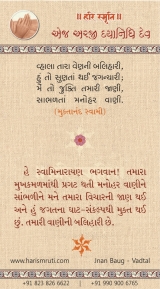 ॥ હરિ સ્મૃતિ ॥
એજ અરજી દયાનિધિ દેવ
વ્હાલા તારા વેણની બલિહારી,
હું તો સુણતાં થઈ જગન્યારી;
મેં તો જુક્તિ તમારી જાણી,
સાંભળતાં મનોહર વાણી.
(મુક્તાનંદ સ્વામી)
હે સ્વામિનારાયણ ભગવાન! તમારા
મુખકમળમાંથી પ્રગટ થતી મનોહર વાણીને
સાંભળીને મને તમારા વિચારની જાણ થઈ
અને હું જગતના ઘાટ-સંકલ્પથી મુક્ત થઈ
છું. તમારી વાણીની બલિહારી છે.
www.harismruti.com
Jnan Baug - Vadtal
+91 823 826 6622 | +91 990 490 6765